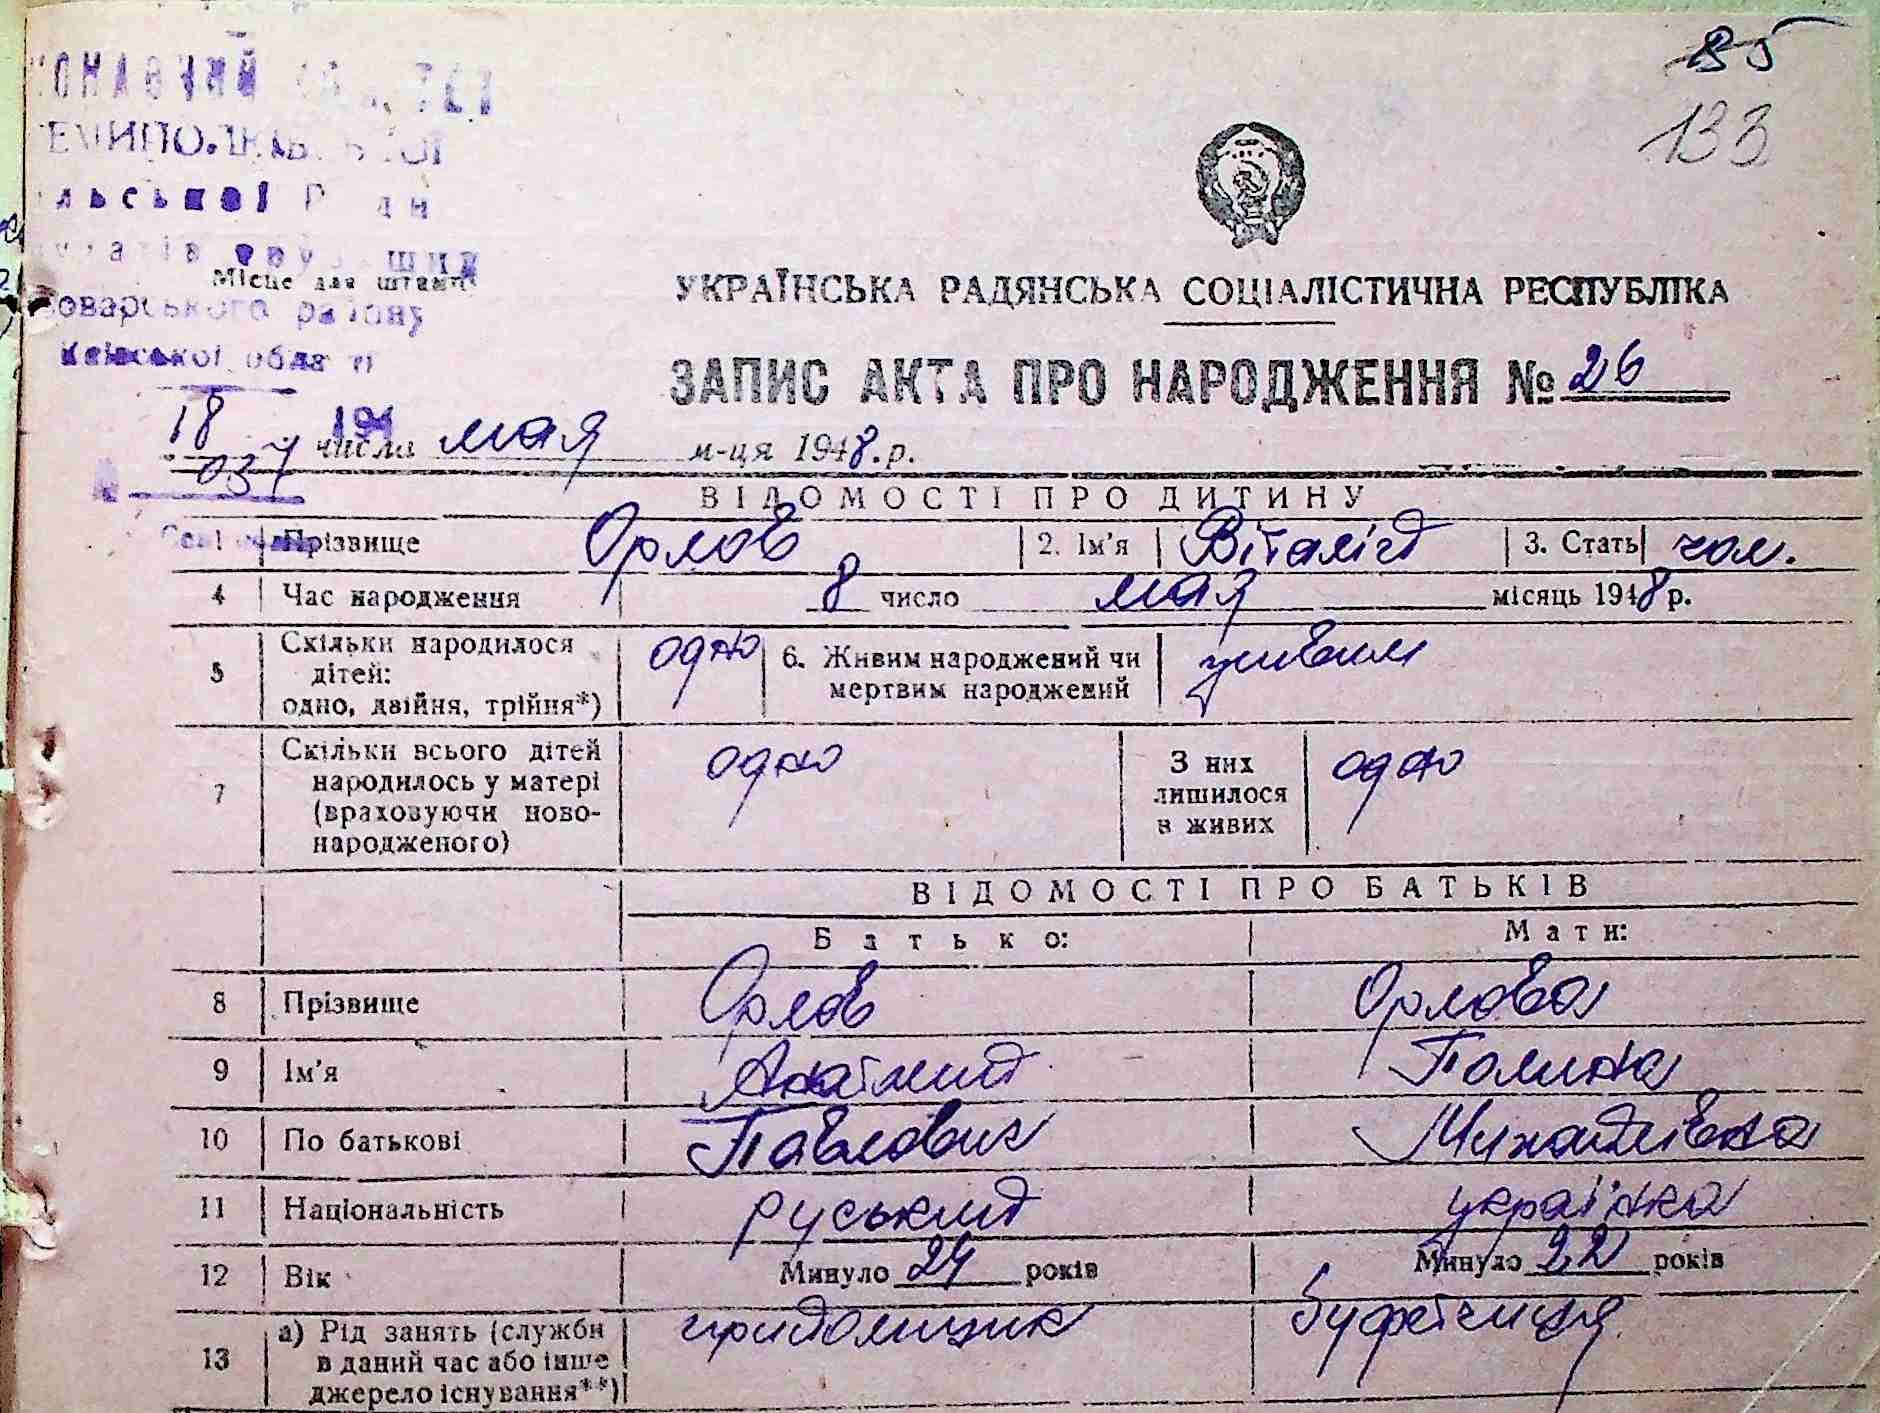 133
ЕМИПОЛКІВСЬКОЇ
льської Ради
Місце для штампу
УКРАЇНСЬКА РАДЯНСЬКА СОЦІАЛІСТИЧНА РЕСПУБЛІКА
оварського району
Київської області
ЗАПИС АКТА ПРО НАРОДЖЕННЯ № 26
18 числа мая м-ця 1948.р.
ВІДОМОСТІ ПРО ДИТИНУ
1 Прізвище Орлов 2. Ім'я Віталій 3. Стать чол.
4 Час народження 8 число мая місяць 1948 р.
5 Скільки народилося дітей: одно, двійня, трійня*) одно 6. Живим народжений чи мертвим народжений живим
7 Скільки всього дітей народилось у матері (враховуючи ново-народженого) одно З них лишилося в живих одно
ВІДОМОСТІ ПРО БАТЬКІВ
Батько: Мати:
8 Прізвище Орлов Орлова
9 Ім'я Анатолий Полина
10 По батькові Павлович Михайлівна
11 Національність руський українка
12 Вік Минуло 24 років Минуло 22 років
13 а) Рід занять (служби в даний час або інше джерело існування**) буфетчиця